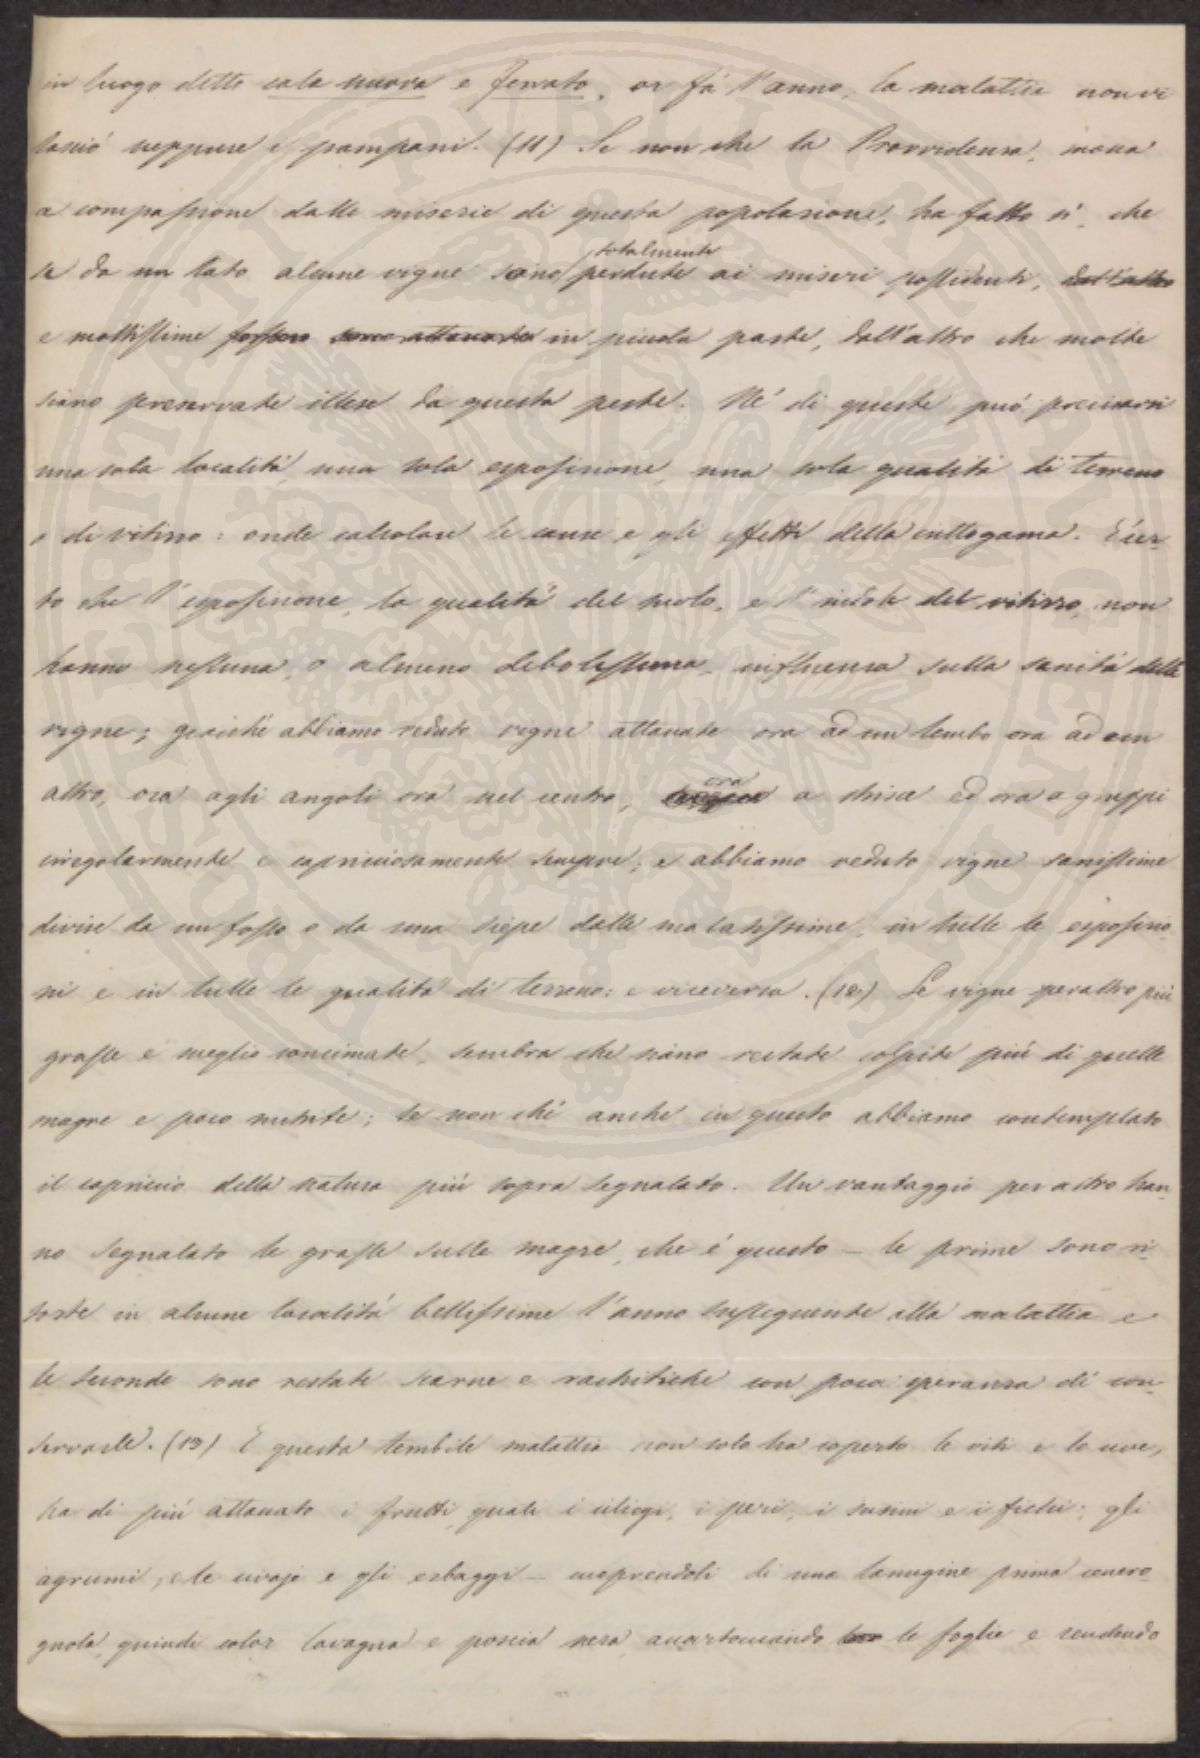 in luogo detto cala nuova e ferrato, or fà l'anno, la malattia non vi
lasciò neppure i pampani. (11) Se non che la Provvidenza, mossa
a compassione dalle miserie di questa popolazione, ha fatto sì, che
totalmente
se da un lato alcune vigne sono perdute ai miseri possidenti, dall'altro
e moltissime fossero sono attaccate in piccola parte, dall'altro che molte
siano preservate illese da questa peste. Nè di queste può precisarsi
una sola località, una sola esposizione, una sola qualità di terreno
o di vitizzo: onde calcolare le cause e gli effetti della crittogama. È cer-
to che l'esposizione, la qualità del suolo, e l'indole del vitizzo, non
hanno nessuna, o almeno debolissima, influenza sulla sanità delle
vigne; giacchè abbiamo veduto vigne attaccate ora ad un lembo ora ad un
ora
altro, ora agli angoli ora nel centro, a strisce ed ora a gruppi
irregolarmente e capricciosamente sempre; e abbiamo veduto vigne sanissime
divise da un fosso o da una siepe dalle malatissime, in tutte le esposizio-
ni e in tutte le qualità di terreno: e viceversa. (12) Le vigne peraltro più
grasse e meglio concimate, sembra che siano restate colpite più di quelle
magre e poco nutrite; se non chè anche in questo abbiamo contemplato
il capriccio della natura più sopra segnalato. Un vantaggio peraltro han-
no segnalato le grasse sulle magre, che è questo – le prime sono ri-
sorte in alcune località bellissime l'anno susseguente alla malattia e
le seconde sono restate scarne e rachitiche con poca speranza di con-
servarle. (13) E questa terribile malattia non solo ha coperto le viti e le uve,
ha di più attaccato i frutti, quali i ciliegi, i peri, i susini e i fichi; gli
agrumi, le civaje e gli erbaggi – cuoprendoli di una lanugine prima cenero-
gnola, quindi color lavagna e poscia nera, accartocciando le foglie e rendendo